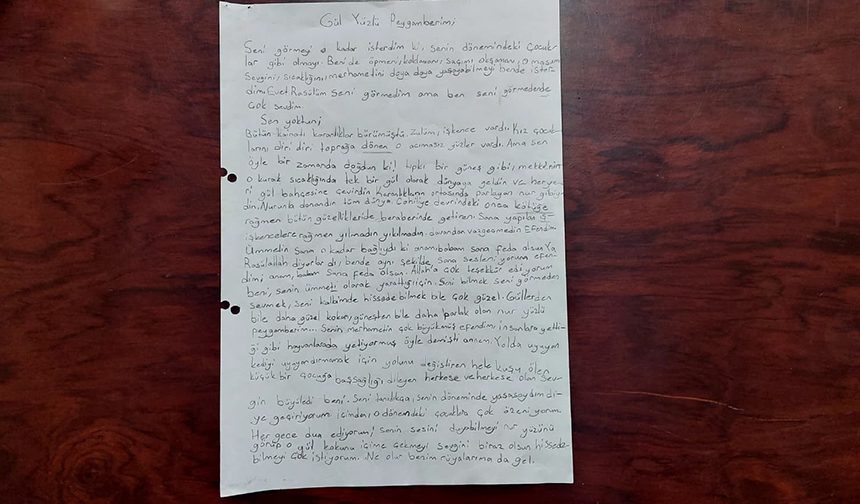 Gül Yüzlü Peygamberim;
Seni görmeyi o kadar isterdim ki, senin dönemindeki çocuk-
lar gibi olmayı. Beni de öpmeni, koklamanı, saçımı okşamanı, o masum
sevgini, sıcaklığını, merhametini doya doya yaşayabilmeyi bende ister-
dim. Evet Rasülüm seni görmedim ama ben seni görmedende
çok sevdim.
Sen yoktun;
Bütün kainatı karanlıklar bürümüştü. Zulüm, işkence vardı. Kız çocuk-
larını diri diri toprağa dönen o acımasız yüzler vardı. Ama sen
öyle bir zamanda doğdun ki! tıpkı bir güneş gibi, mekkenin
o kurak sıcaklığında tek bir gül olarak dünyaya geldin ve her ye-
ri gül bahçesine çevirdin. Karanlıkların ortasında parlayan nur gibiy-
din. Nurunla donandın tüm dünya. Cahiliye devrindeki onca kötülüğe
rağmen bütün güzellikleride beraberinde getirdin. Sana yapılan
işkencelere rağmen yılmadın yıkılmadın. davandan vazgeçmedin Efendim
Ümmetin sana o kadar bağlıydı ki anam babam sana feda olsun Ya
Rasülallah diyorlardı, bende aynı şekilde sana sesleniyorum efen-
dim; anam, babam sana feda olsun. Allah'a çok teşekkür ediyorum
beni, senin ümmetin olarak yarattığı için. Seni bilmek seni görmeden
sevmek, seni kalbimde hissedebilmek bile çok güzel. Güllerden
bile daha güzel kokan, güneşten bile daha parlak olan nur yüzlü
peygamberim... Senin merhametin çok büyükmüş efendim, insanlara yetti-
ği gibi hayvanlarada yetiyormuş öyle demişti annem. Yolda uyuyan
kediyi uyandırmamak için yolunu değiştiren hele kuşu ölen
küçük bir çocuğa başsağlığı dileyen herkese ve herkese olan sev-
gin büyüledi beni. Seni tanıdıkça, senin döneminde yaşasaydım di-
ye geçiriyorum içimden, o dönemdeki çocuklara çok özeniyorum.
Her gece dua ediyorum; senin sesini duyabilmeyi nur yüzünü
görüp o gül kokunu içime çekmeyi sevgini biraz olsun hissede-
bilmeyi çok istiyorum. Ne olur benim rüyalarıma da gel.